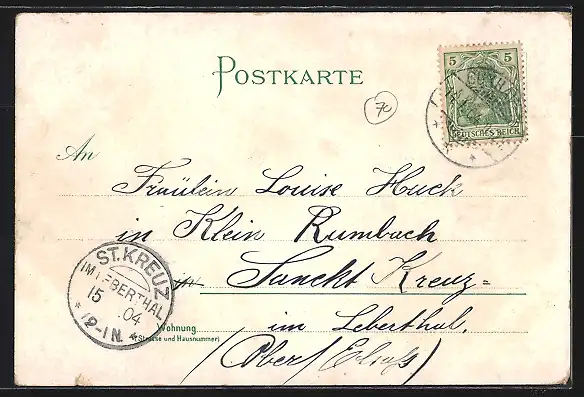 POSTKARTE
5 5
DEUTSCHES REICH
70
An
Fräulein Louise Huck
in Klein Rumbach
in Sanckt Kreuz=
im Leberthal.
(Ober/Elsaß)
Wohnung
(Strasse und Hausnummer)
ST. KREUZ
IM LEBERTHAL
15 04
* 12-1 N. *